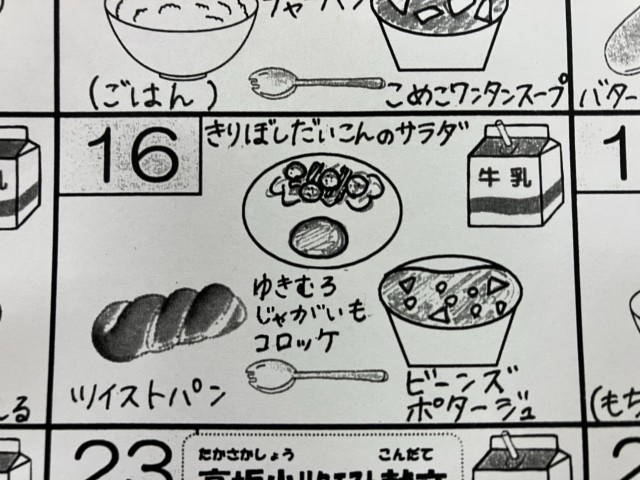 (ごはん)
こめこワンタンスープ
バター
16
きりぼしだいこんのサラダ
牛乳
1
ゆきむろ
じゃがいも
コロッケ
ツイストパン
ビーンズ
ポタージュ
(もち
23
たかさかしょう こんだて
2